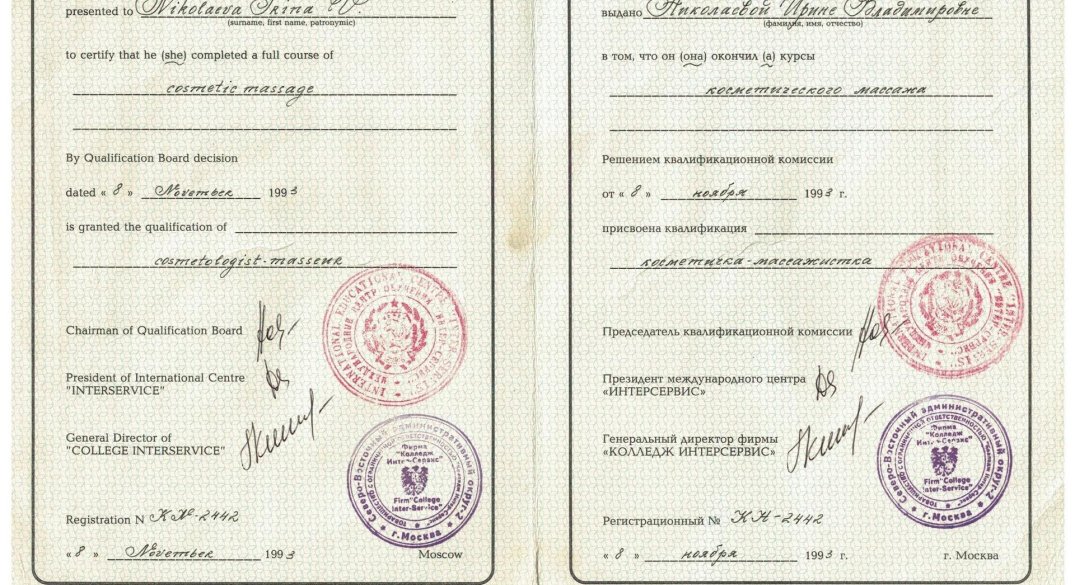 presented to Nikolaeva Irina W.
(surname, first name, patronymic)
to certify that he (she) completed a full course of
cosmetic massage
By Qualification Board decision
dated « 8 » November 1993
is granted the qualification of
cosmetologist-masseur
Chairman of Qualification Board
President of International Centre
"INTERSERVICE"
General Director of
"COLLEGE INTERSERVICE"
Registration N КН-2442
« 8 » November 1993 Moscow
INTERNATIONAL EDUCATIONAL CENTRE "INTER-SERVIS"
МЕЖДУНАРОДНЫЙ ЦЕНТР ОБУЧЕНИЯ "ИНТЕР-СЕРВИС"
Северо-Восточный административный округ-2
г.Москва
Фирма
"Колледж
Интер-Сервис"
Firm "College
Inter-Service"
выдано Николаевой Ирине Владимировне
(фамилия, имя, отчество)
в том, что он (она) окончил (а) курсы
косметического массажа
Решением квалификационной комиссии
от « 8 » ноября 1993 г.
присвоена квалификация
косметичка-массажистка
Председатель квалификационной комиссии
Президент международного центра
«ИНТЕРСЕРВИС»
Генеральный директор фирмы
«КОЛЛЕДЖ ИНТЕРСЕРВИС»
Регистрационный № КН-2442
« 8 » ноября 1993 г. г. Москва
Северо-Восточный административный округ-2
г.Москва
Фирма
"Колледж
Интер-Сервис"
Firm "College
Inter-Service"